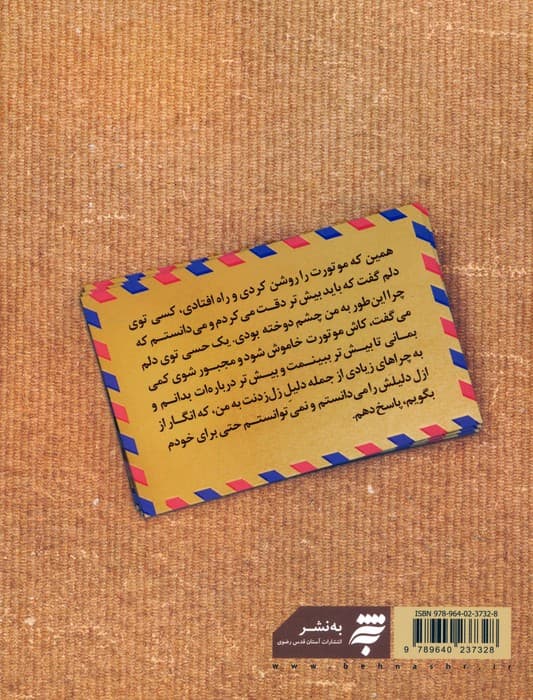 همین که موتورت را روشن کردی و راه افتادی، کسی توی
دلم گفت که باید بیش تر دقت می‌کردم و می‌دانستم که
چرا این‌طور به من چشم دوخته بودی. یک حسی توی دلم
می‌گفت، کاش موتورت خاموش شود و مجبور شوی کمی
بمانی تا بیش تر ببینمت و بیش تر درباره‌ات بدانم و
به چراهای زیادی از جمله دلیل زل‌زدنت به من، که انگار از
ازل دلیلش را می‌دانستم و نمی‌توانستم حتی برای خودم
بگویم، پاسخ دهم.
به نشر
انتشارات آستان قدس رضوی
ISBN 978-964-02-3732-8
9 789640 237328
www.behnashr.ir